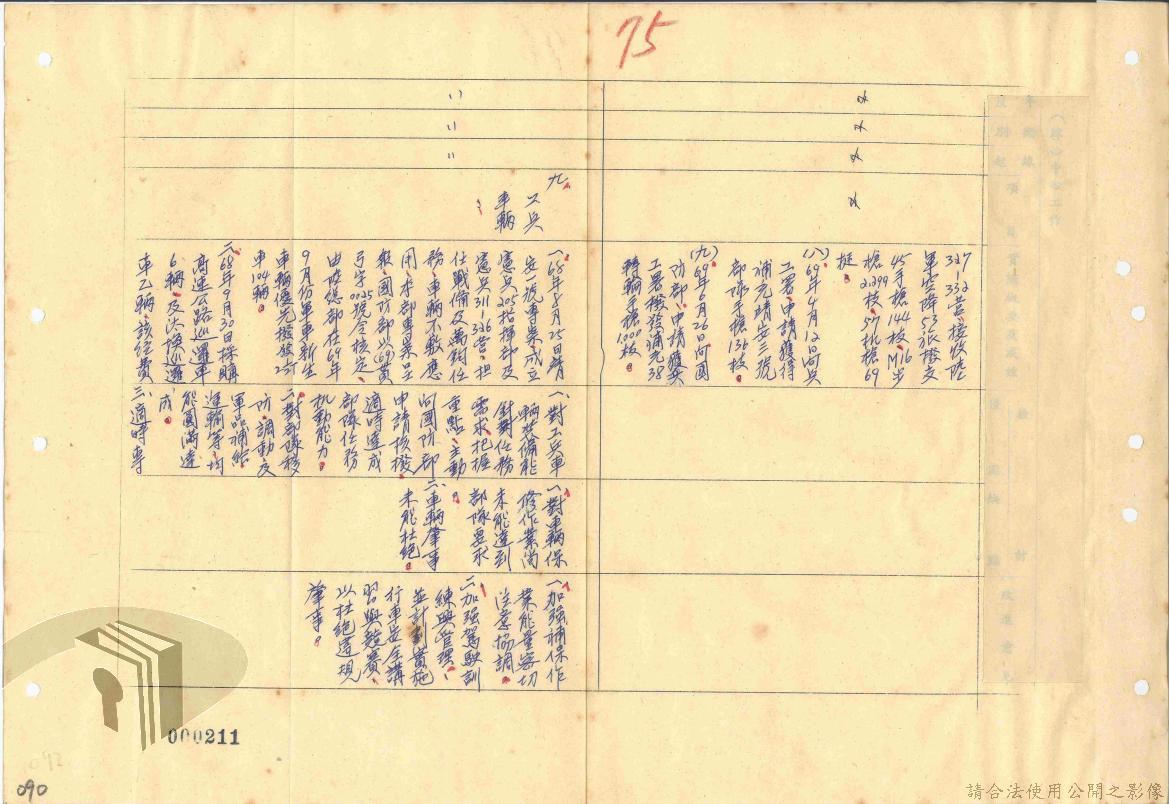 75
327
332營、接收陸
軍空降53張撥交
45手槍144枝、M16步
槍2,299枝、57機槍69
挺。
(八)69年4月12日向兵
工署、申請獲得
補充靖安三號
部隊手槍136枝。
(九)69年6月26日向國
防部、申請獲兵
工署撥發補充38
轉輪手槍1,000枝。
九、工兵
車輛
一、68年8月25日靖
安一號專案、成立
憲兵205指揮部及
憲兵311-326營、担
任戰備及萬鈞任
務、車輛不敷應
用、本部專案呈
報、國防部以(69)黃
弓字0025號令核定、
由陸總部在69年
9月份軍車新生
車輛優先撥發2¼T
車104輛。
二、68年9月30日採購
高速公路巡邏車
6輛、及
車乙輛、該經費
一、對工兵車
輛裝備能
針對任務
需求、把握
重點、主動
向國防部
申請核撥、
適時達成
部隊任務
機動能力。
二、對部隊移
防、調動及
軍品補給
運輸等、均
能圓滿達
成。
三、適時專
一、對車輛保
修作業尚
未能達到
部隊要求。
二、車輛肇事
未能杜絕。
一、加強補保作
業能量密切
注意協調。
二、加強駕駛訓
練與管理、
並計劃實施
行車安全講
習與競賽、
以杜絕違規
肇事。
000211
090
請合法使用公開之影像